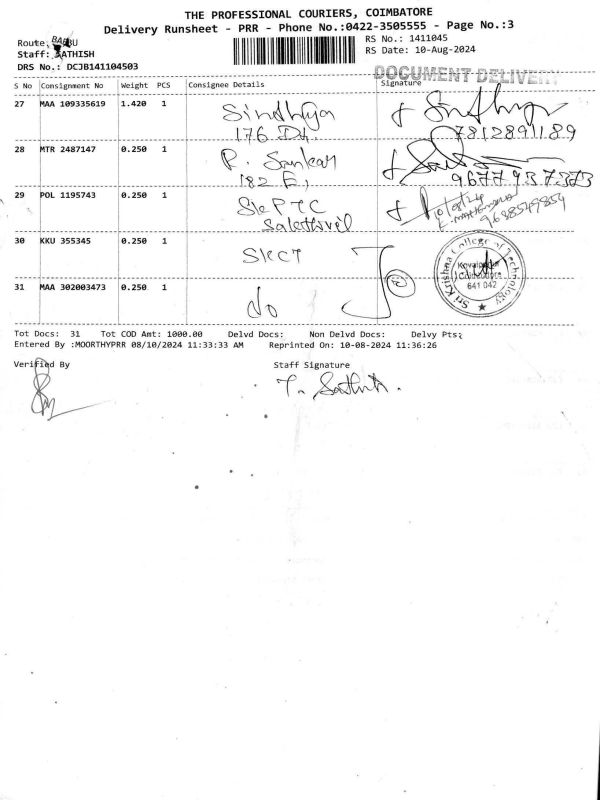 THE PROFESSIONAL COURIERS, COIMBATORE
Delivery Runsheet - PRR - Phone No.:0422-3505555 - Page No.:3
Route: BABBU
RS No.: 1411045
Staff: SATHISH
RS Date: 10-Aug-2024
DRS No.: DCJB141104503
DOCUMENT DELIVERY
S No Consignment No Weight PCS Consignee Details Signature
27 MAA 109335619 1.420 1 Sindhya
176 D4 7812891189
28 MTR 2487147 0.250 1 R. Sankar
182 E, 9677937373
29 POL 1195743 0.250 1 SKPTC 10/08/24
Sakthivel 9688549854
30 KKU 355345 0.250 1 SKCT
Sri Krishna College of Technology
Kovaipudur
Coimbatore
641 042
31 MAA 302003473 0.250 1 do 2
Tot Docs: 31 Tot COD Amt: 1000.00 Delvd Docs: Non Delvd Docs: Delvy Pts:
Entered By :MOORTHYPRR 08/10/2024 11:33:33 AM Reprinted On: 10-08-2024 11:36:26
Verified By Staff Signature
T. Sathish.